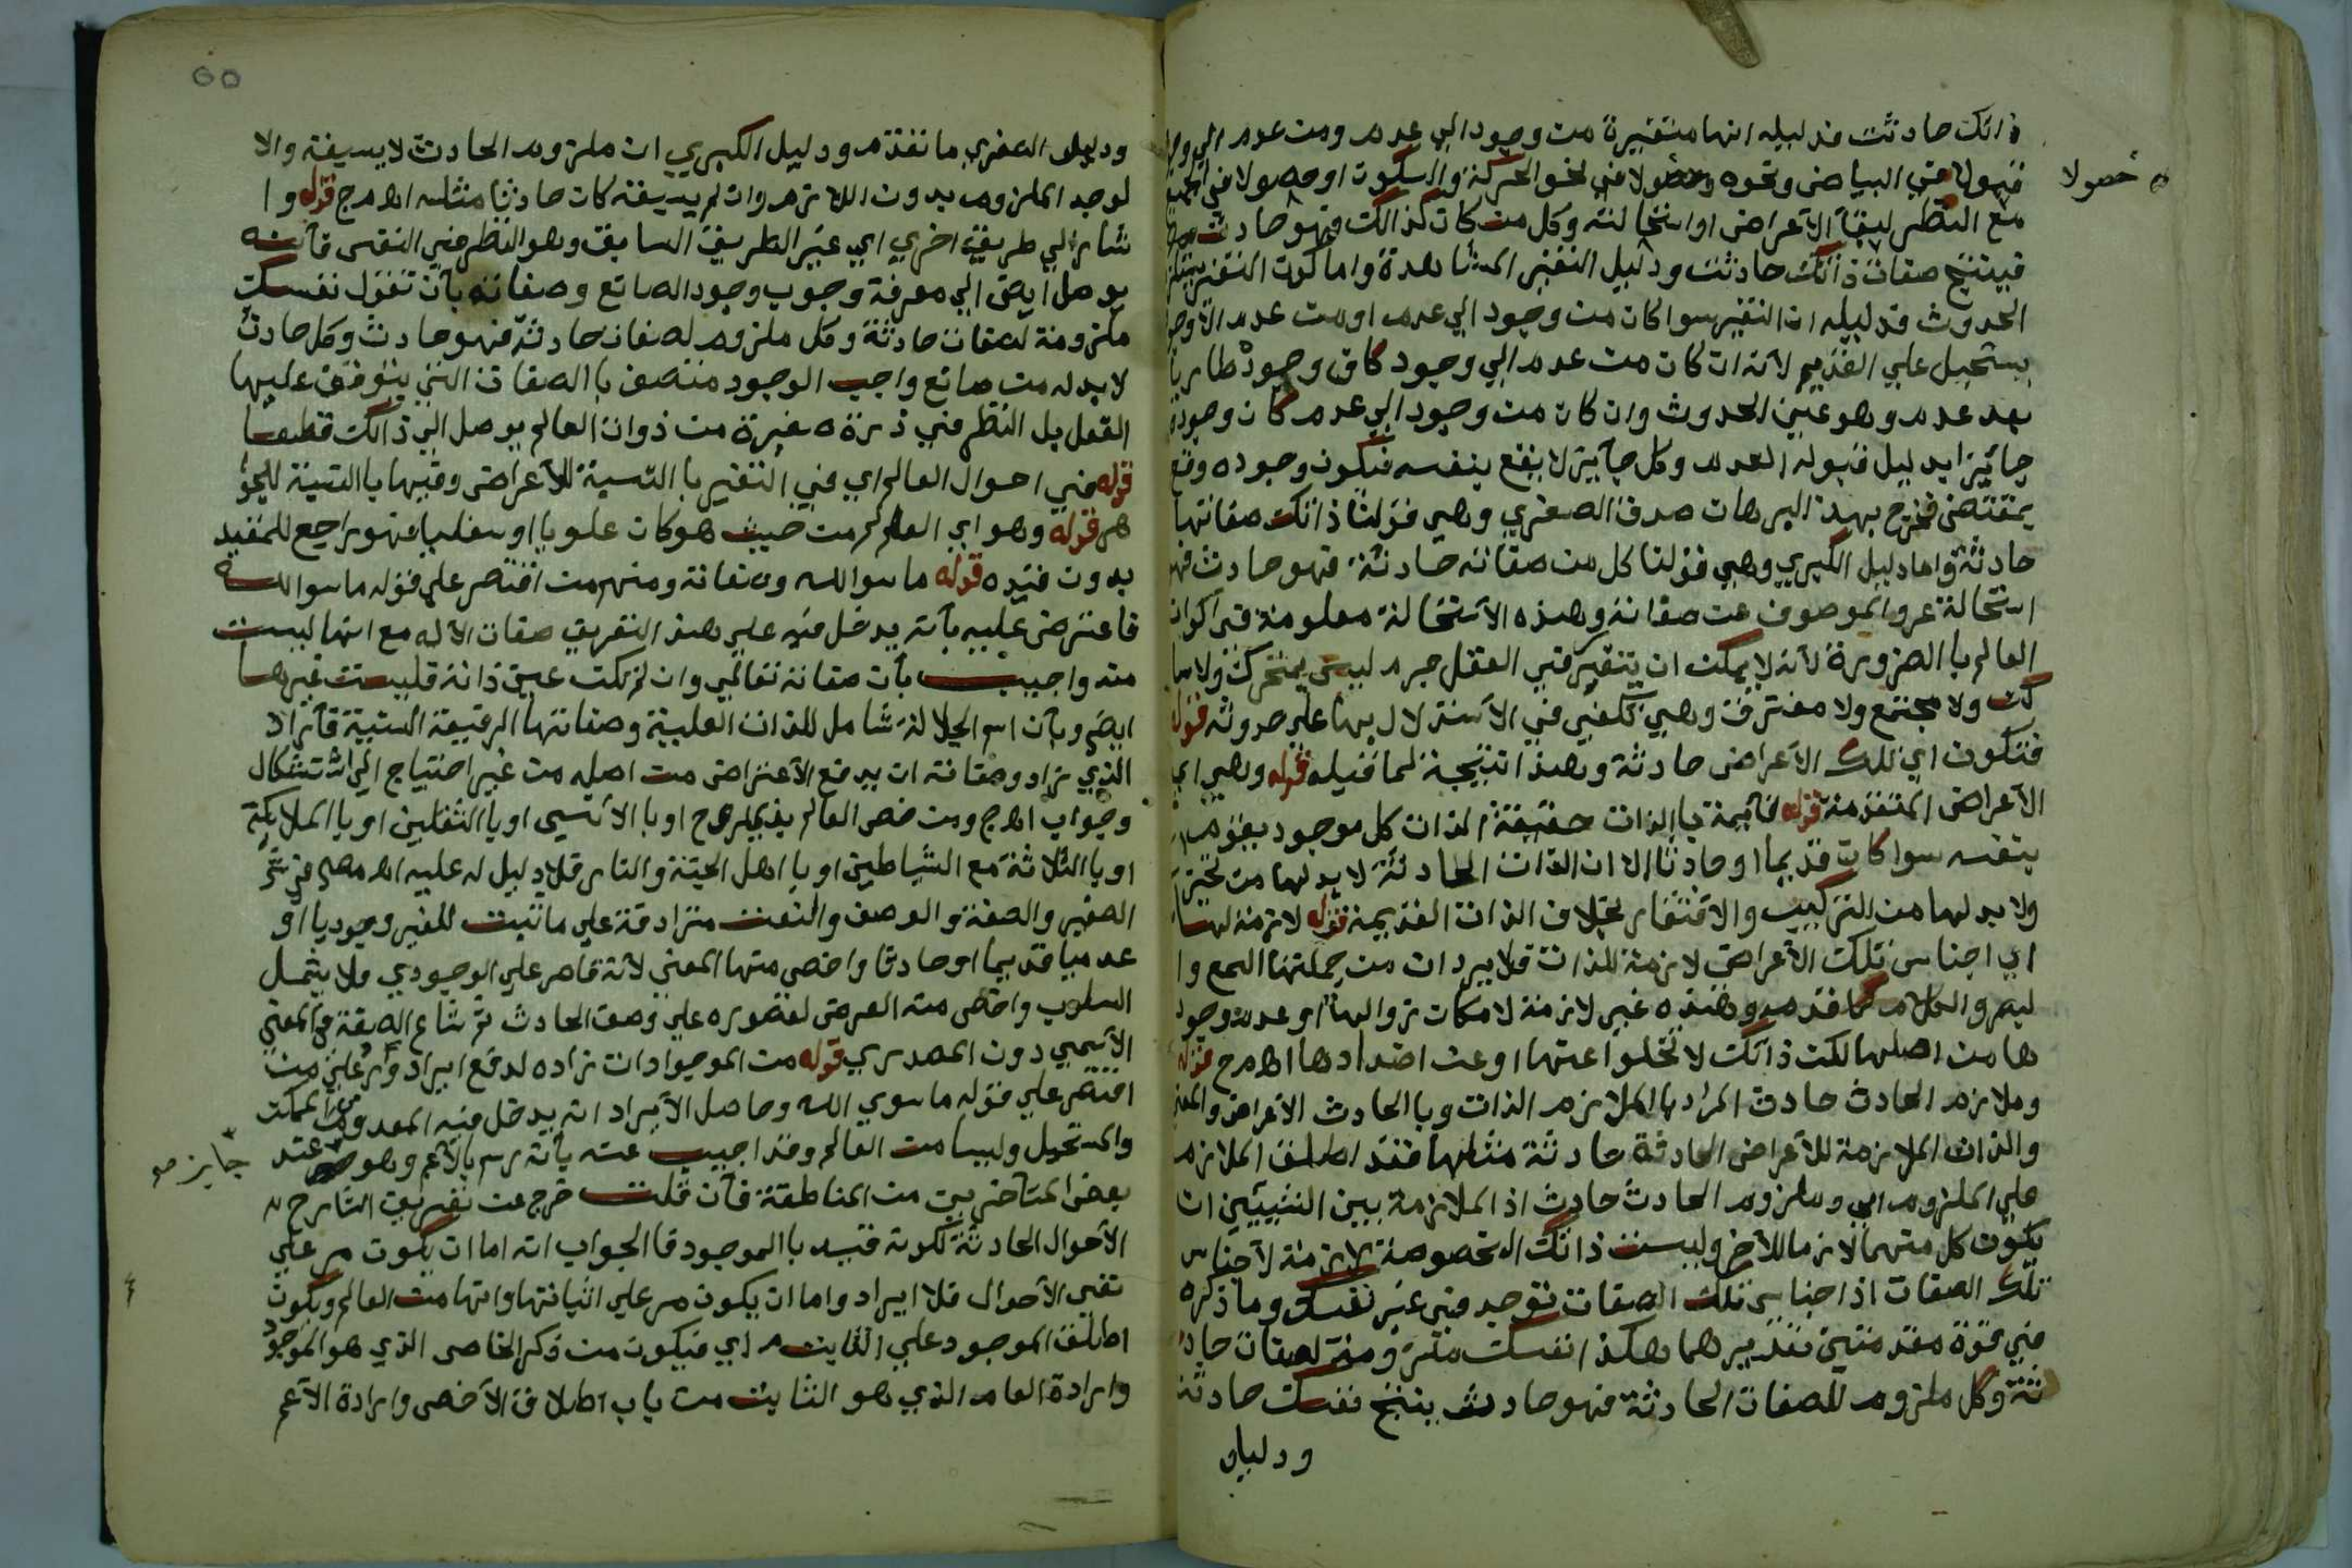 ذالك حادثت فدليله انها متغيرة من وجود الي عدم ومن عدم الي وجو
حصولا
فهولا في البياض ونحوه وحصولا في نحو الحركة والسكون او حصولا في الجميع
مع النظر لبقآ الآعراض اواستحالته وكل من كان كذالك فهو حادث
فينتج صفات ذالك حادثت ودليل التغير المشاهدة واما كون التغير يستلزم
الحدوث فدليله ان التغير سوا كان من وجود الي عدم اومن عدم الا وجو
يستحيل علي القديم لآنه ان كان من عدم الي وجود كان وجوده طاريا
بعد عدم وهو عين الحدوث وان كان من وجود الي عدم كان وجوده
جآئيزا بدليل قبوله العدم وكل جآييز لا يقع بنفسه فيكون وجوده وقع
بمقتضي فخرج بهذ البرهان صدق الصغري وهي قولنا ذالك صفاتها
حادثة واما دليل الكبري وهي قولنا كل من صفاته حادثة فهو حادث فهو
استحالة عرو الموصوف عن صفاته وهذه الآستحالة معلومة في آكوان
العالم با الضرورة لآنه لا يمكن ان يتقرر في العقل جرم ليس بمتحرك ولا سا
كن ولا مجتمع ولا مفترق وهي تكفي في الآستدلال بها علي حدوثه قوله
فتكون اي تلك الآعراض حادثة وهذا نتيجة لما قبله قوله وهي اي
الآعراض المتقدمة قوله قآيمة با الذات حقيقة الذات كل موجود يقوم
بنفسه سوا كان قديما او حادثا الا ان الذات الحادثة لا بد لها من تحيز
ولا بد لها من التركيب والافتقار بخلاف الذات القديمة قوله لازمة لها
اي اجناس تلك الآعراض لازمة للذات فلا يرد ان من جملتها السمع وا
لبصر والكلام كما قدم وهذه غير لازمة لامكان زوالها او عدم وجود
ها من اصلها لكن ذالك لا تخلوا عنها او عن اضدادها اهـ م ج قوله
وملازم الحادث حادث المراد با الملازم الذات وبا الحادث الآعراض والمعني
والذات الملازمة للآعراض الحادثة حادثة مثلها فقد اطلق الملازم
علي الملزوم اي وملزوم الحادث حادث اذ الملازمة بين الشييئين ان
يكون كل منهما لازما للآخر وليست ذالك المخصوصة لازمة لآجناس
تلك الصفات اذ اجناس تلك الصفات توجد في غير نفسك وما ذكره
في قوة مقدمتين تقديرهما هكذا نفسك ملزومة لصفات حاد
ثة وكل ملزوم للصفات الحادثة فهو حادث ينتج نفسك حادثت
ودليل
60
ودليل الصغري ما تقدم ودليل الكبري ان ملزوم الحادث لا يسبقه والا
لوجد الملزوم بدون اللازم وان لم يسبقه كان حادثا مثله اهـ م ج قوله وا
شار الي طريقة اخري اي غير الطريق السابق وهو النظر في النفس فآنه
يوصل ايضا الي معرفة وجوب وجود الصانع وصفاته بآن تقول نفسك
ملزومة لصفات حادثة وكل ملزوم لصفات حادثة فهو حادث وكل حادث
لا بد له من صانع واجب الوجود متصف با الصفات التي يتوقف عليها
الفعل بل النظر في ذرة صغيرة من ذوات العالم يوصل الي ذالك قطعا
قوله في احوال العالم اي في التغير با النسبة للآعراض وقبها با النسبة للجوا
هر قوله وهو اي العالم من حيث هو كان علويا او سفليا فهو راجع للمقيد
بدون قيده قوله ما سوا الله وصفاته ومنهم من اقتصر علي قوله ما سوا الله
فاعترض عليه بآنه يدخل فيه علي هذ التعريف صفات الآله مع انها ليست
منه واجيب بآن صفاته تعالي وان لم تكن عين ذاته فليست غيرها
ايضا وبآن اسم الجلالة شامل للذات العلية وصفاتها الرفيعة السنية فآراد
الذي زاد وصفاته ان يدفع الآعتراض من اصله من غير احتياج الي استشكال
وجواب اهـ م ج ومن خص العالم بذي روح او با الآنسي او با الثقلين او با الملايكة
او با الثلاثة مع الشياطين او با اهل الجنة والنار فلا دليل له عليه اهـ
الصغير والصفة والوصف والنعت مترادفة علي ما ثبت للغير وجوديا او
عدميا قديما او حادثا واخص منها المعني لآنه قاصر علي الوجودي ولا يشمل
السلوب واخص منه العرض لقصوره علي وصف الحادث ثم شاع الصفة في المعني
الآسمي دون المصدري قوله من الموجودات زاده لدفع ايراد وارد علي من
اقتصر علي قوله ما سوي الله وحاصل الآيراد انه يدخل فيه المعدوم من الممكن
والمستحيل وليسا من العالم وقد اجيب عنه بآنه رسم بالآعم وهو عند
جايز صح
بعض المتآخرين من المناطقة فآن قلت خرج عن تعريف الشارح
الآحوال الحادثة لكونه قيد با الموجود فا الجواب انه اما ان يكون مر علي
نفي الآحوال فلا ايراد واما ان يكون مر علي اثباتها وانها من العالم ويكون
اطلق الموجود علي الثابت اي فيكون من ذكر الخاص الذي هو الموجود
وارادة العام الذي هو الثابت من باب اطلاق الآخص وارادة الآعم